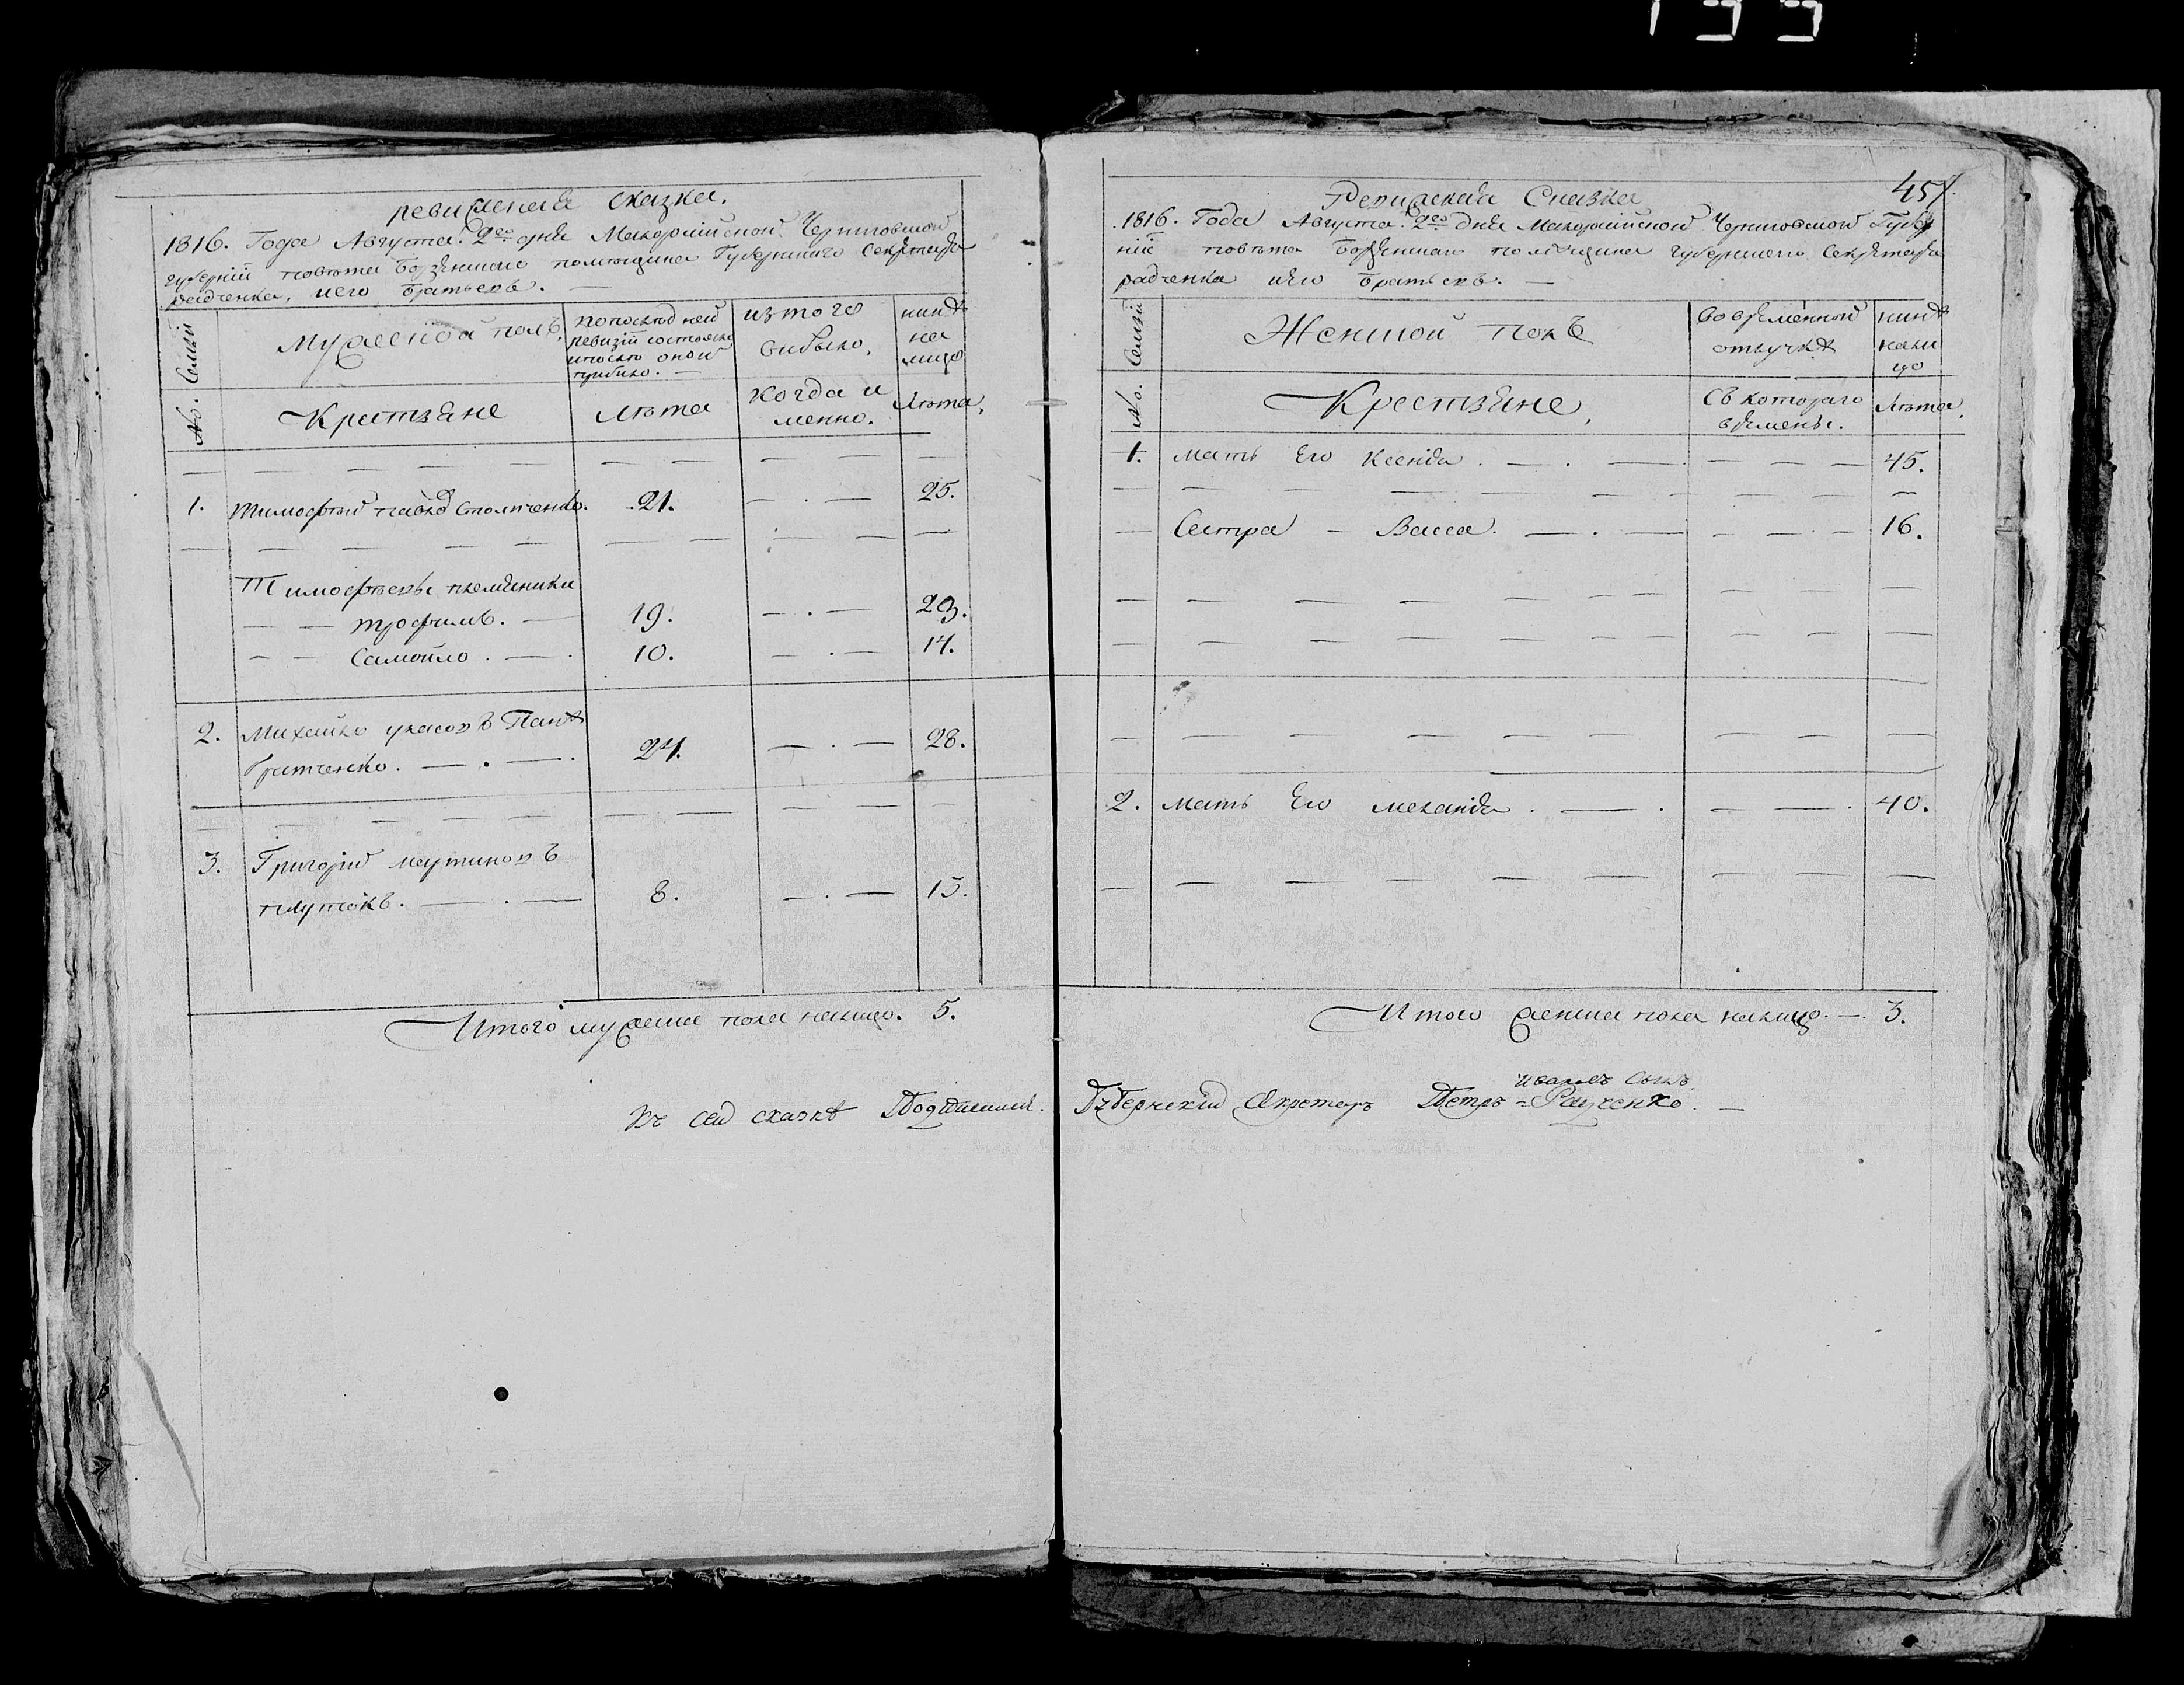 ревизская сказка.
1816. Года Августа 2го дня Малоросійской Черниговской
губерніи повѣта Борзенскаго помѣщика Губернскаго Секретаря
радченка, иего братьевъ.
Семіи
мужеской полъ,
попослѣдней
ревизіи состояло
ипослѣ оной
прибыло.
изтого
выбыло,
нинѣ
на
лицо
No.
Крестьяне
лѣта
когда и
менно.
лѣта,
1. тимофей Столпченко. 21. 25.
Тимофѣевы племяники
трофимъ. 19. 23.
Самойло. 10. 14.
2. Михайло
24. 28.
3. Григорій
плутокъ. 8. 13.
Итого мужеска пола налицо. 5.
Къ сей сказкѣ
199
451
Ревижская Сказка
1816. Года Августа 2го дня Малоросійской Черниговской Губер
ніи повѣта Борзенскаго помѣщика губернскаго Секретаря
радченка иего братьевъ.
Семіи
Женской полъ
во временной
отлучкѣ
нинѣ
нали
цо
No.
Крестьяне,
съ котораго
времены.
лѣта,
1. мать Его Ксенія. 45.
Сестра Васса. 16.
2. мать Его меланія. 40.
Итого женска пола налицо. 3.
ивановъ сынъ
Губернский Секретарь Петръ Радченко.